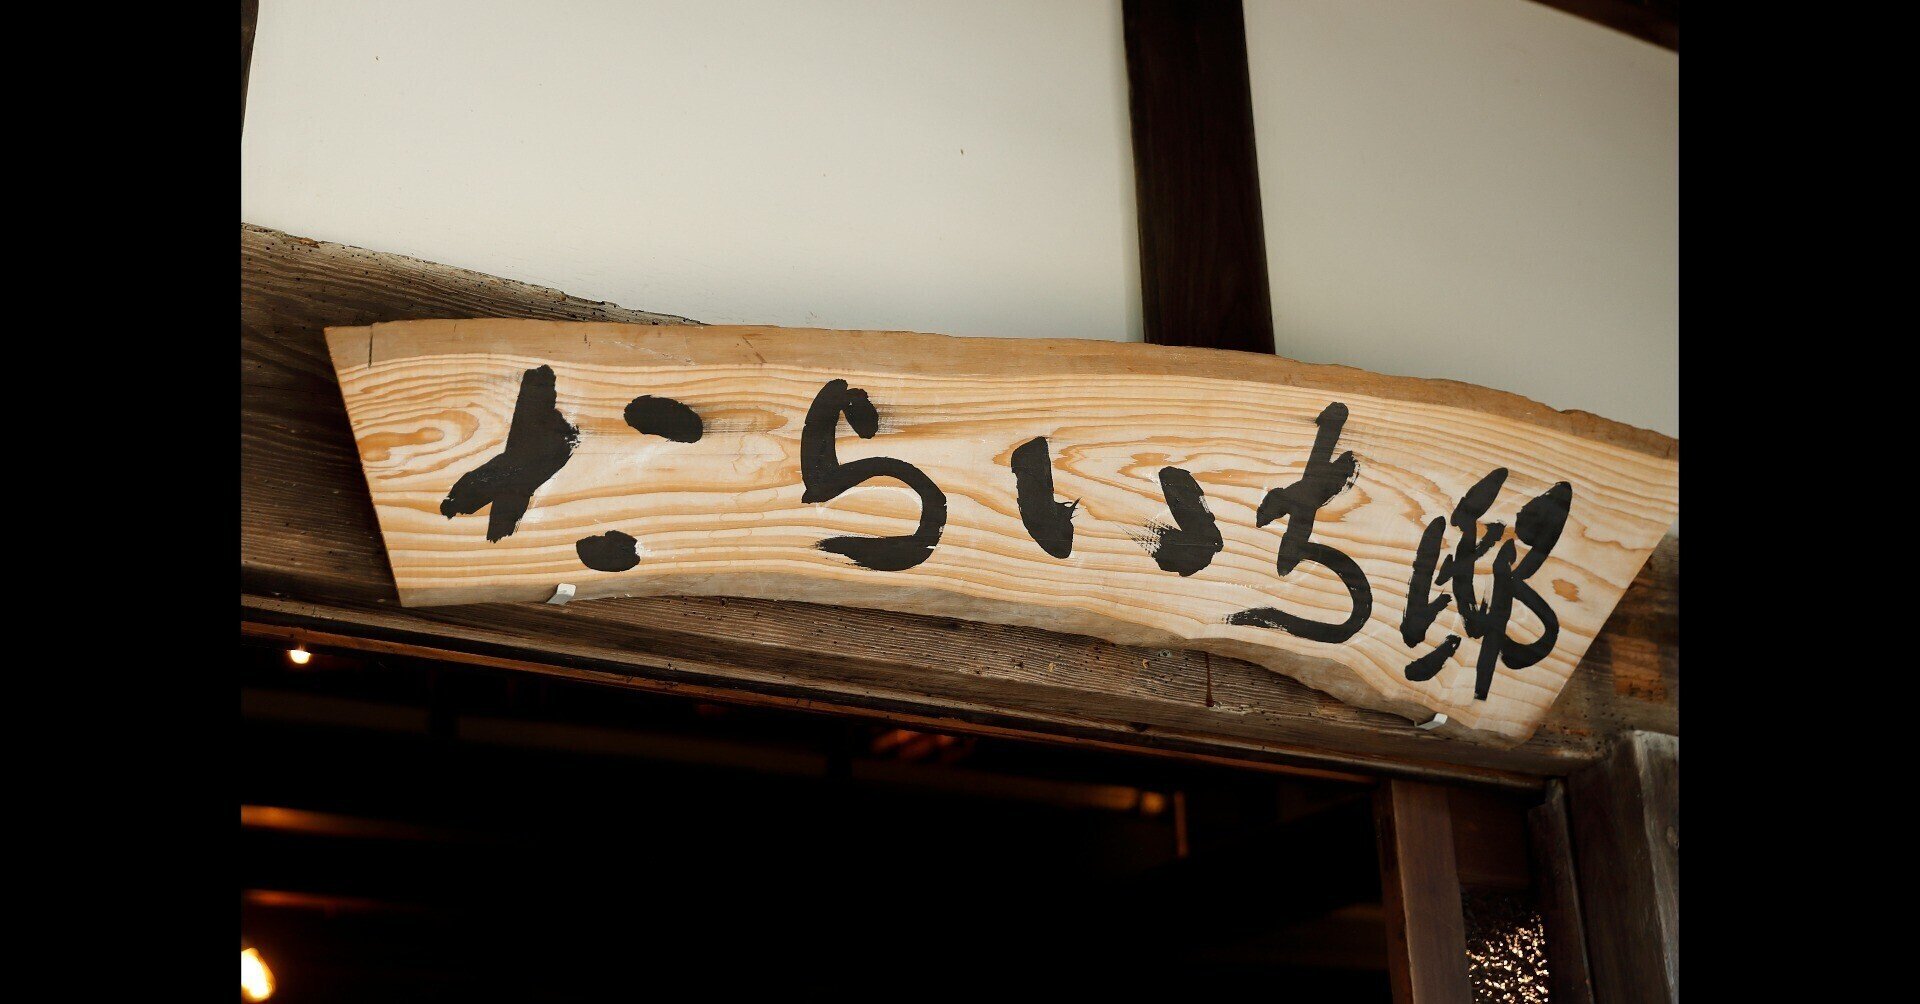 たらいち邸